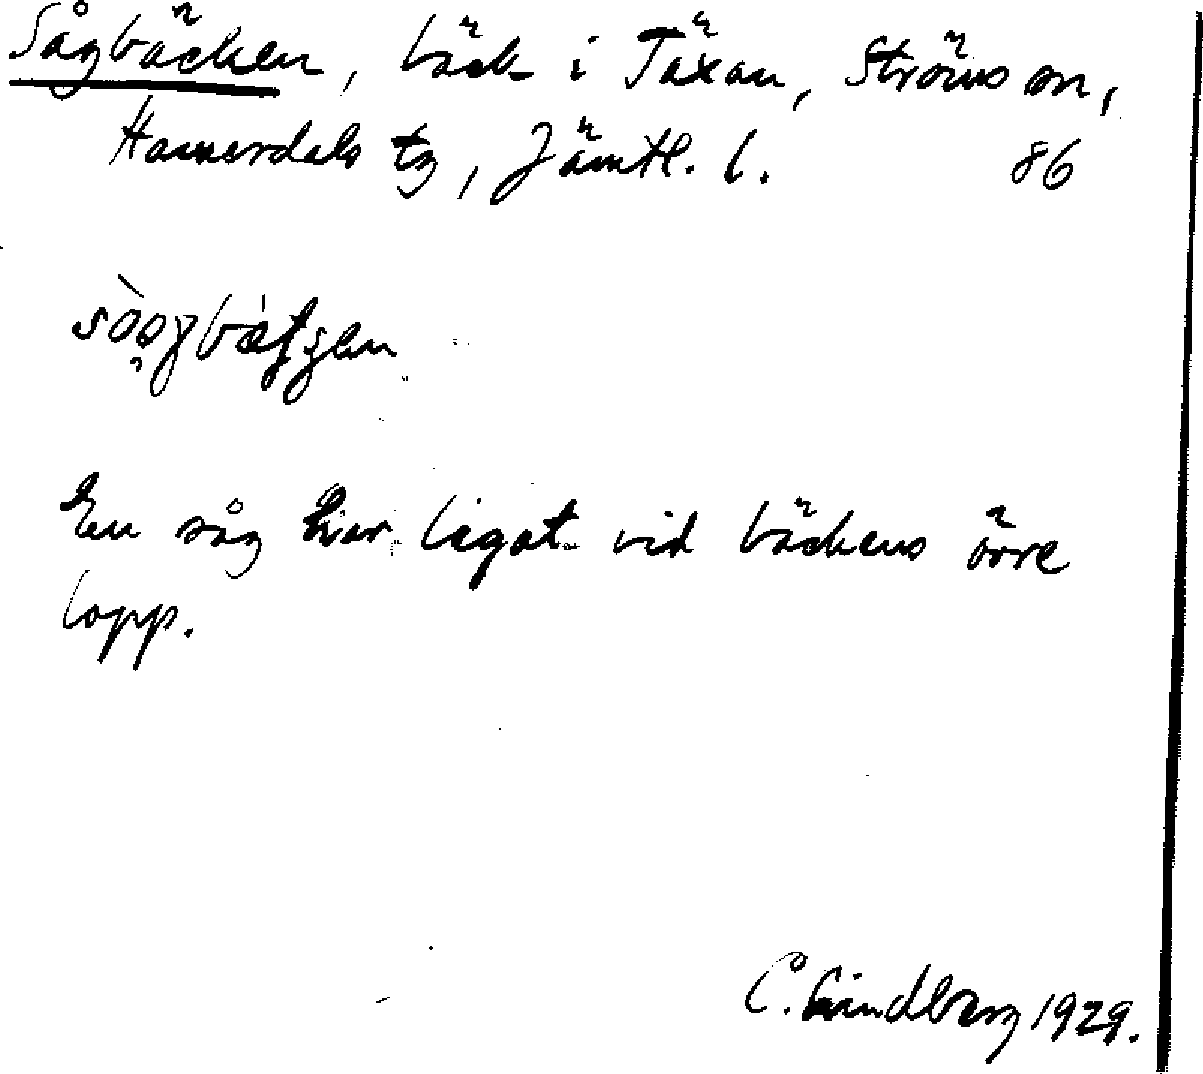 Sågbäcken, bäck i Täxan, Ströms sn,
Hamerdals tg, Jämtl. l. 86
En såg har legat vid bäckens övre
lopp.
C. Lindberg 1929.